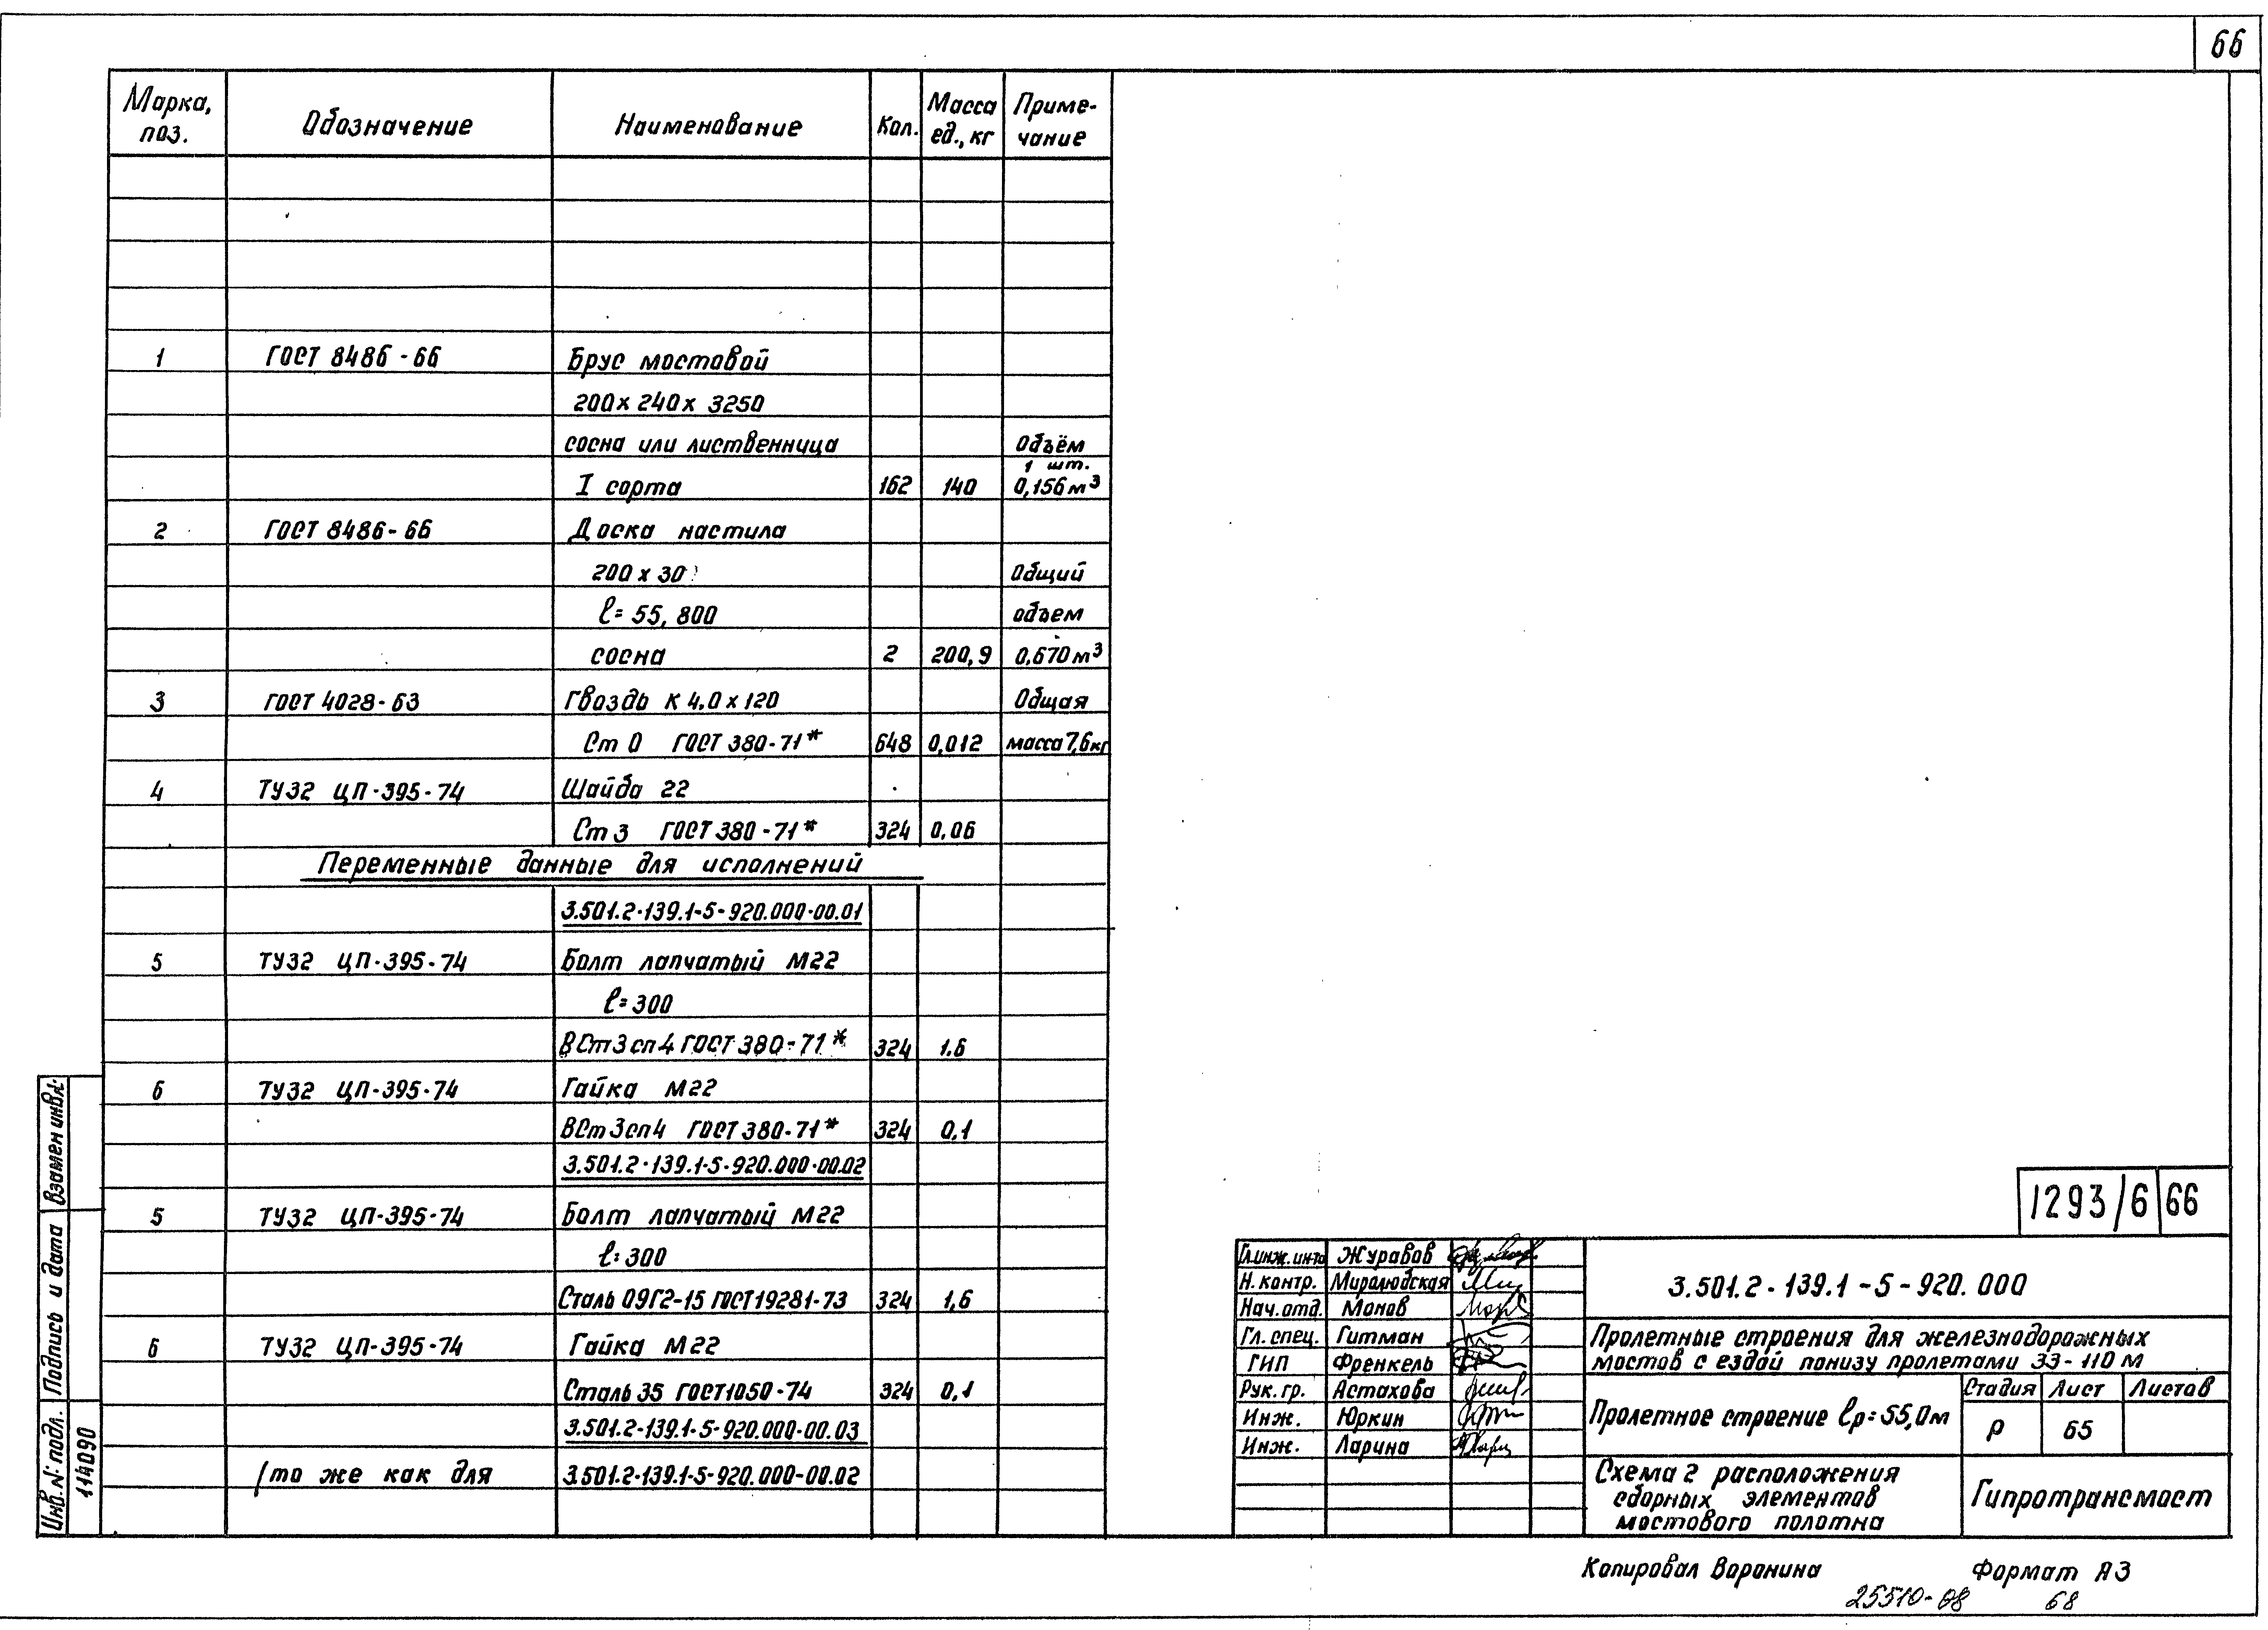 66
Марка, поз. Обозначение Наименование Кол. Масса ед., кг Приме-чание
1 ГОСТ 8486-66 Брус мостовой
200х240х3250
сосна или лиственница Объём
1 шт.
I сорта 162 140 0,156м³
2 ГОСТ 8486-66 Доска настила
200х30 Общий
ℓ=55,800 объем
сосна 2 200,9 0,670м³
3 ГОСТ 4028-63 Гвоздь К 4,0х120 Общая
Ст 0 ГОСТ 380-71* 648 0,012 масса 7,6кг
4 ТУ32 ЦП-395-74 Шайба 22
Ст 3 ГОСТ 380-71* 324 0,06
Переменные данные для исполнений
3.501.2-139.1-5-920.000-00.01
5 ТУ32 ЦП-395-74 Болт лапчатый М22
ℓ=300
ВСт3сп4 ГОСТ 380-71* 324 1.6
6 ТУ32 ЦП-395-74 Гайка М22
ВСт3сп4 ГОСТ 380-71* 324 0,1
3.501.2-139.1-5-920.000-00.02
5 ТУ32 ЦП-395-74 Болт лапчатый М22
ℓ=300
Сталь 09Г2-15 ГОСТ19281-73 324 1,6
6 ТУ32 ЦП-395-74 Гайка М22
Сталь 35 ГОСТ1050-74 324 0,1
3.501.2-139.1-5-920.000-00.03
/то же как для 3.501.2-139.1-5-920.000-00.02
Взамен инв.№
Подпись и дата
Инв.№ подл.
114090
1293/6 66
Гл.инж.ин-та Журавов
Н.контр. Миролюбская
Нач.отд. Монов
Гл.спец. Гитман
ГИП Френкель
Рук.гр. Астахова
Инж. Юркин
Инж. Ларина
3.501.2-139.1-5-920.000
Пролетные строения для железнодорожных
мостов с ездой понизу пролетами 33-110 м
Пролетное строение ℓр=55,0м
Стадия Лист Листов
Р 65
Схема 2 расположения
сборных элементов
мостового полотна
Гипротрансмост
Копировал Воронина Формат А3
25510-08 68